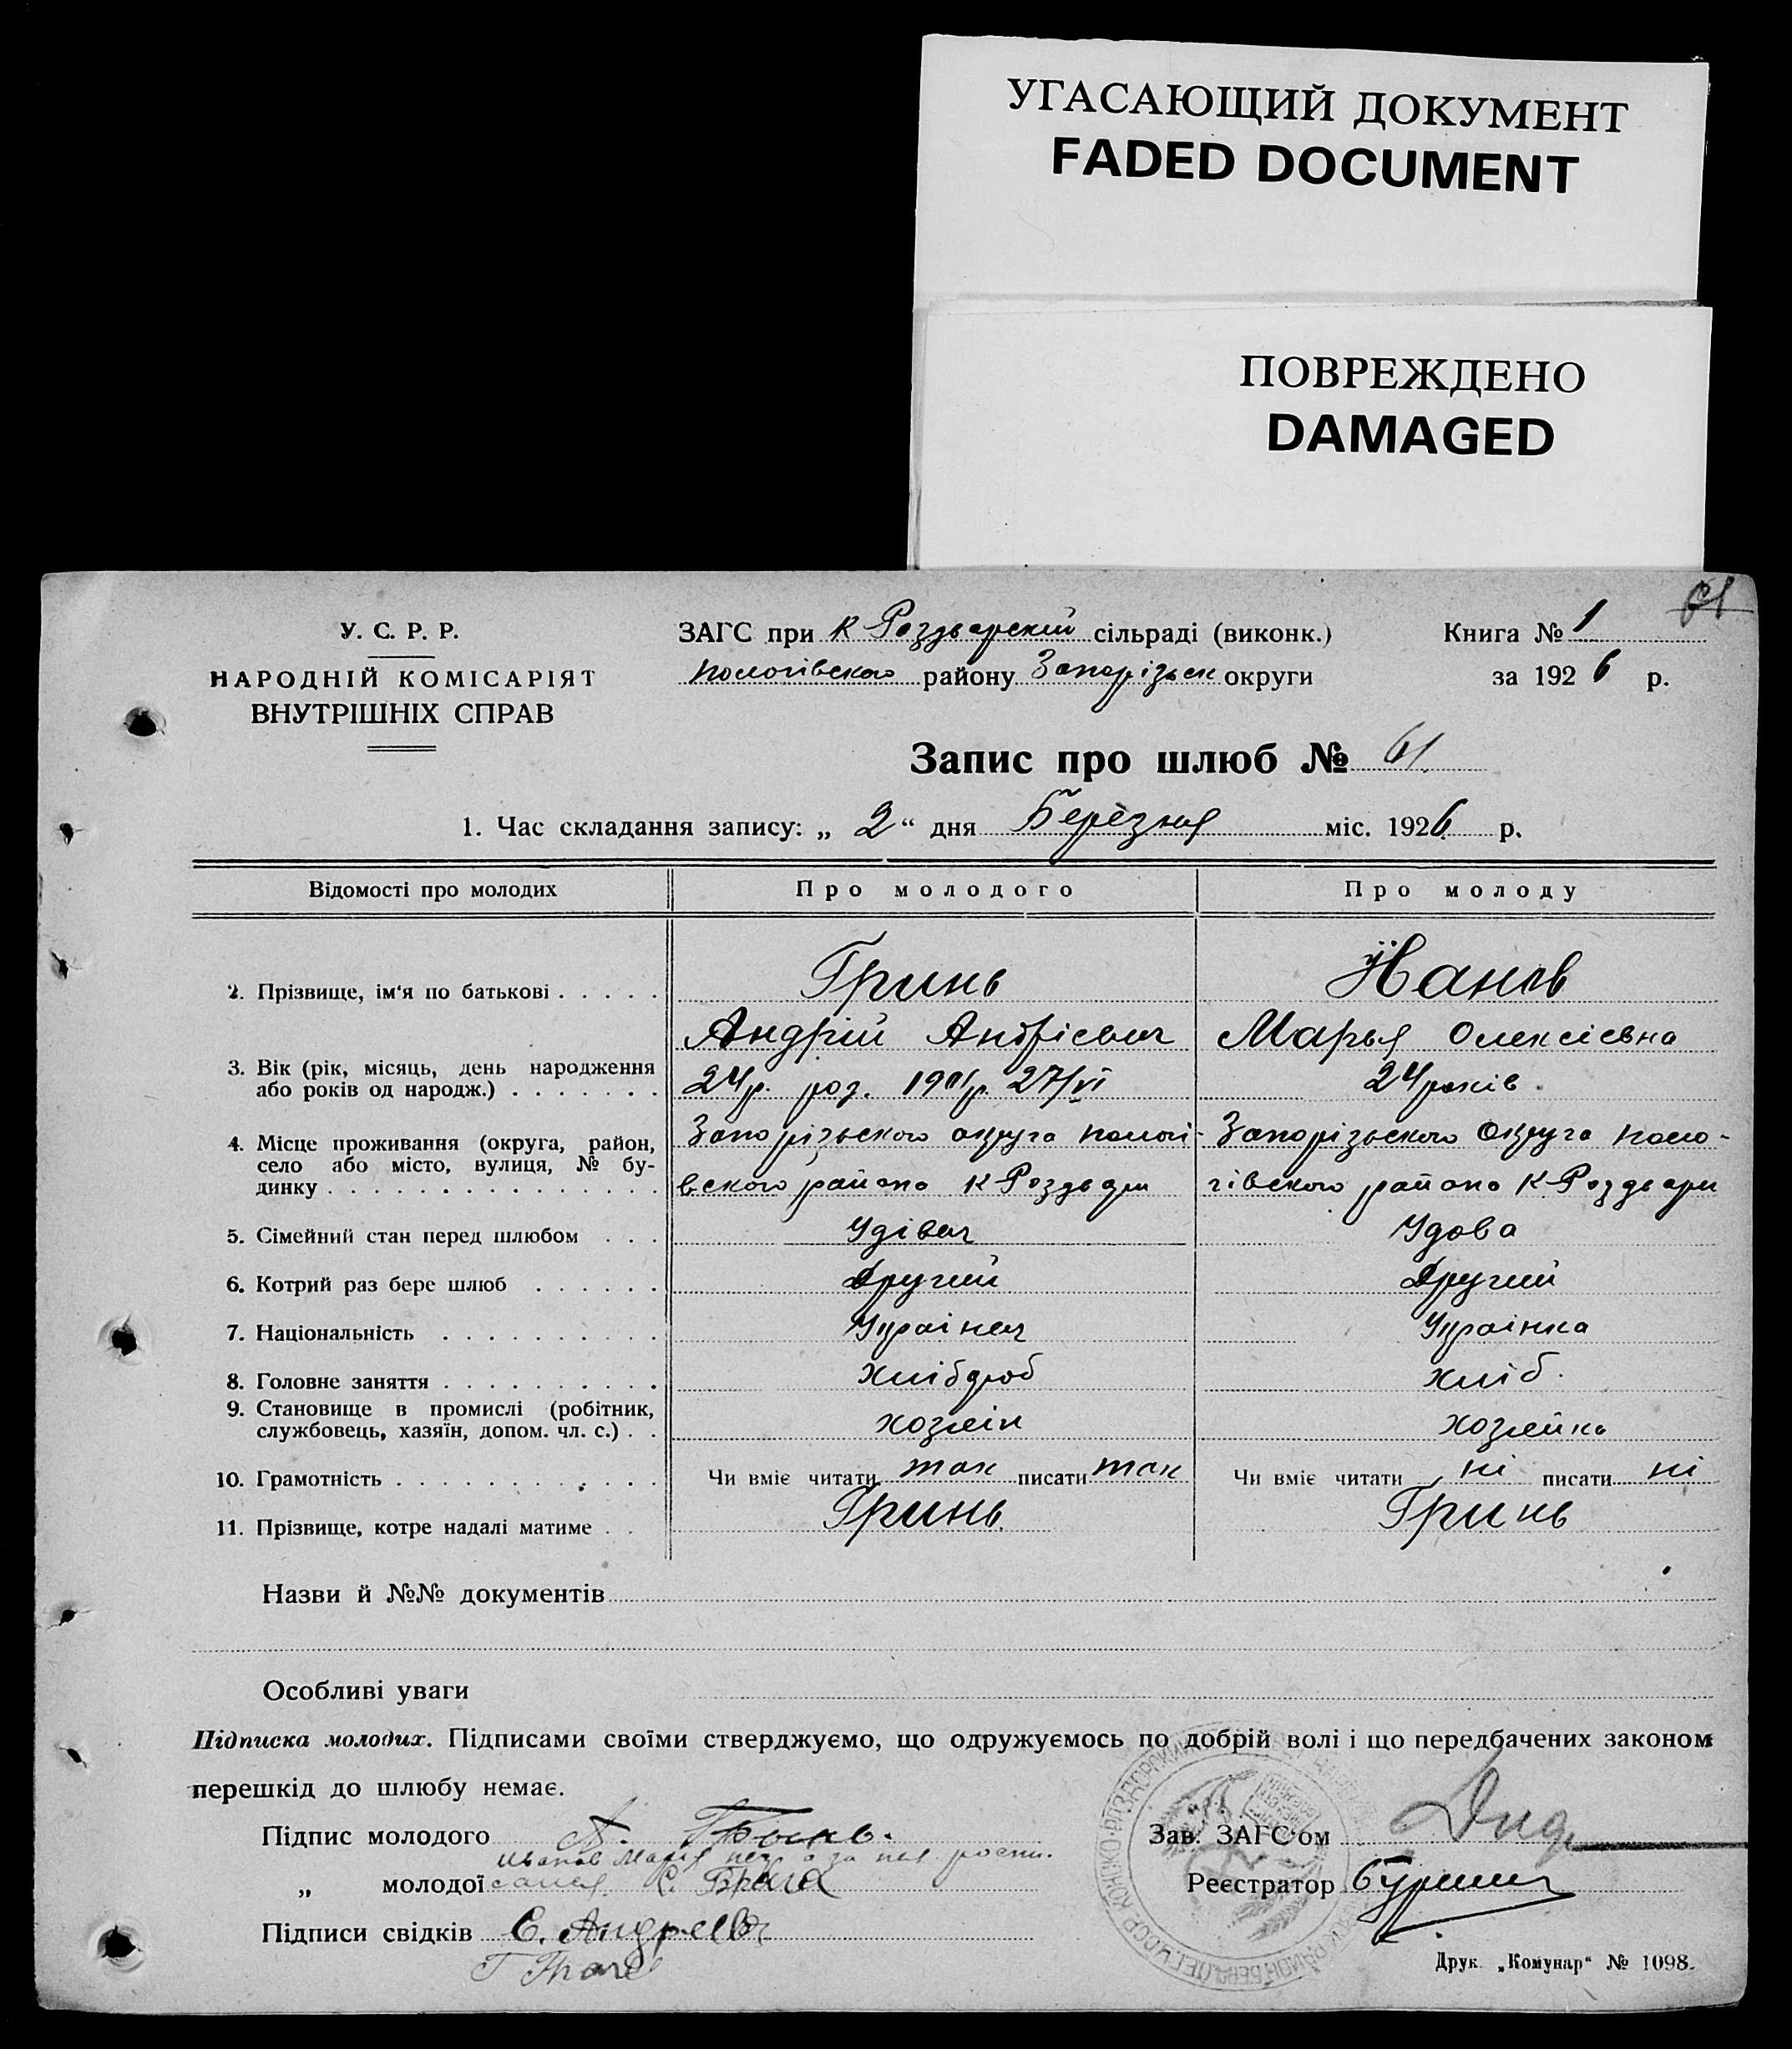 УГАСАЮЩИЙ ДОКУМЕНТ
FADED DOCUMENT
ПОВРЕЖДЕНО
DAMAGED
61
У. С. Р. Р.
НАРОДНІЙ КОМІСАРІЯТ
ВНУТРІШНІХ СПРАВ
ЗАГС при К Роздварскій сільраді (виконк.)
Пологівского району Запорізьк округи
Книга № 1
за 1926 р.
Запис про шлюб № 61.
1. Час складання запису: „ 2 “ дня Березня міс. 1926 р.
Відомості про молодих Про молодого Про молоду
2. Прізвище, ім'я по батькові . . . . . Гринь Иванов
Андрій Андрієвич Марья Олексієвна
3. Вік (рік, місяць, день народження
або років од народж.) . . . . . . . 24р. роз. 1901р. 27/VI 24 років.
4. Місце проживання (округа, район, Запорізьского округа Пологі- Запорізьского Округа Поло-
село або місто, вулиця, № бу-
динку . . . . . . . . . . . . . . . вского района К Роздври гівского района К. Роздвари
5. Сімейний стан перед шлюбом . . . Удівач Удова
6. Котрий раз бере шлюб . . . . . . Другий Другий
7. Національність . . . . . . . . . . Українец Українка
8. Головне заняття . . . . . . . . . . Хлібороб хліб.
9. Становище в промислі (робітник,
службовець, хазяїн, допом. чл. с.) . . хозяін хозяйка
10. Грамотність . . . . . . . . . . . . Чи вміє читати так писати так Чи вміє читати ні писати ні
11. Прізвище, котре надалі матиме . . Гринь Гринь
Назви й №№ документів
Особливі уваги
Підписка молодих. Підписами своїми стверджуємо, що одружуємось по добрій волі і що передбачених законом
перешкід до шлюбу немає.
Підпис молодого А. Гринь.
Иванов Мария
„ молодої
Підписи свідків Е. Андреев
Зав. ЗАГС'ом
Реєстратор
Друк. „Комунар“ № 1098.